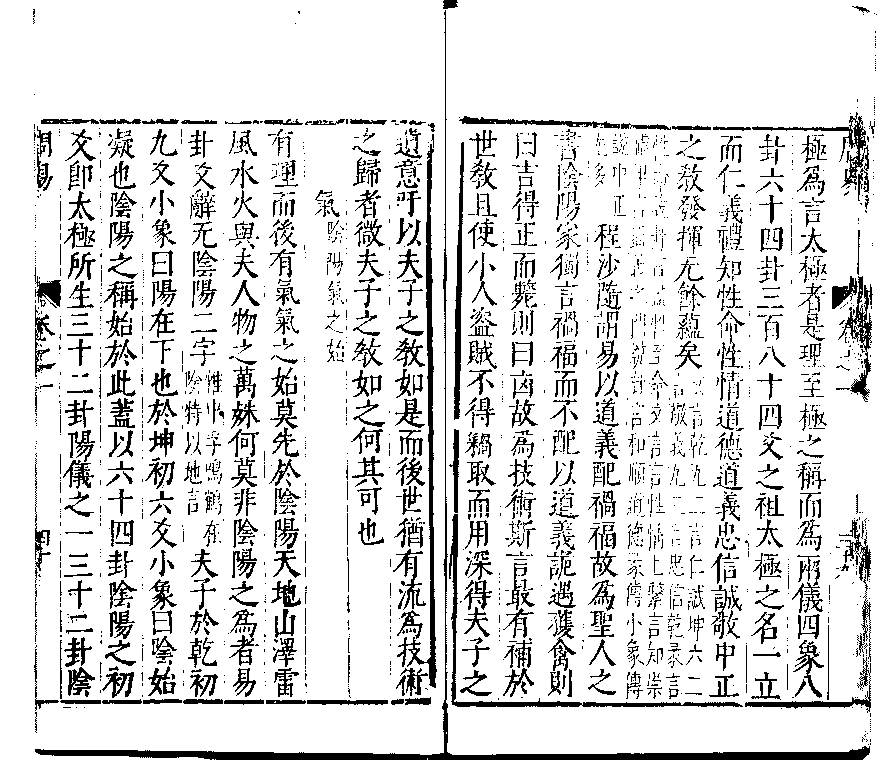 極爲言太極者是理至極之稱而爲兩儀四象八
卦六十四卦三百八十四爻之祖太極之名一立
而仁義禮知性命性情道德道義忠信誠敬中正
之教發揮无餘蘊矣 言乾九二言仁誠坤六二
言敬義九二言忠信乾彖言
性命文言言性情上繫言知崇
和順道德彖傳小象傳
說中正
程沙隨謂易以道義配禍福故爲聖人之
書陰陽家獨言禍福而不配以道義詭遇獲禽則
曰吉得正而斃則曰凶故爲技術斯言最有補於
世敎且使小人盜賊不得竊取而用深得夫子之
遺意吁以夫子之敎如是而後世猶有流爲技術
之歸者微夫子之敎如之何其可也
氣 陰陽氣之始
有理而後有氣氣之始莫先於陰陽天地山澤雷
風水火與夫人物之萬姝何莫非陰陽之爲者易
卦爻辭无陰陽二字 惟中孚鳴鶴在
陰特以地言 夫子於乾初
九爻小象曰陽在下也於坤初六爻小象曰陰始
凝也陰陽之稱始於此蓋以六十四卦陰陽之初
爻卽太極所生三十二卦陽儀之一三十二卦陰
周易
卷之一
四十